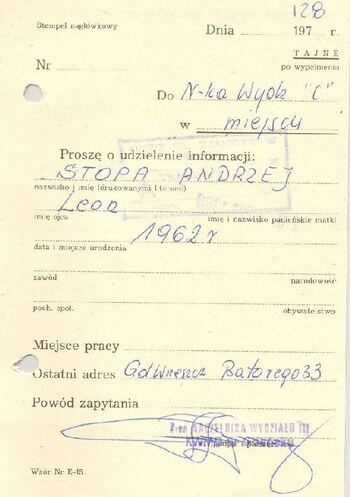 128
Stempel nagłówkowy
Dnia 197 r.
TAJNE
po wypełnieniu
Nr
Do N-ka Wydz "C"
w miejscu
Proszę o udzielenie informacji:
STOPA ANDRZEJ
nazwisko i imię (drukowanymi literami)
Leon
imię ojca imię i nazwisko panieńskie matki
1962 r
data i miejsce urodzenia
zawód narodowość
poch. społ. obywatelstwo
Miejsce pracy
Ostatni adres Gd Wrzeszcz Batorego 33
Powód zapytania
Z-ca NACZELNIKA WYDZIAŁU III
Wzór Nr E-15.